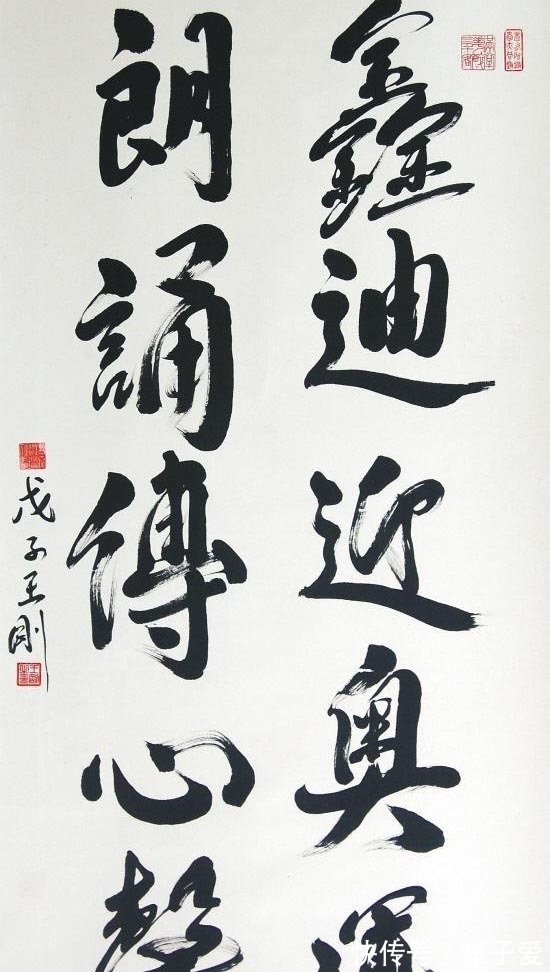 鑫迪迎奥運
朗誦傳心聲
戊子王剛
快传号